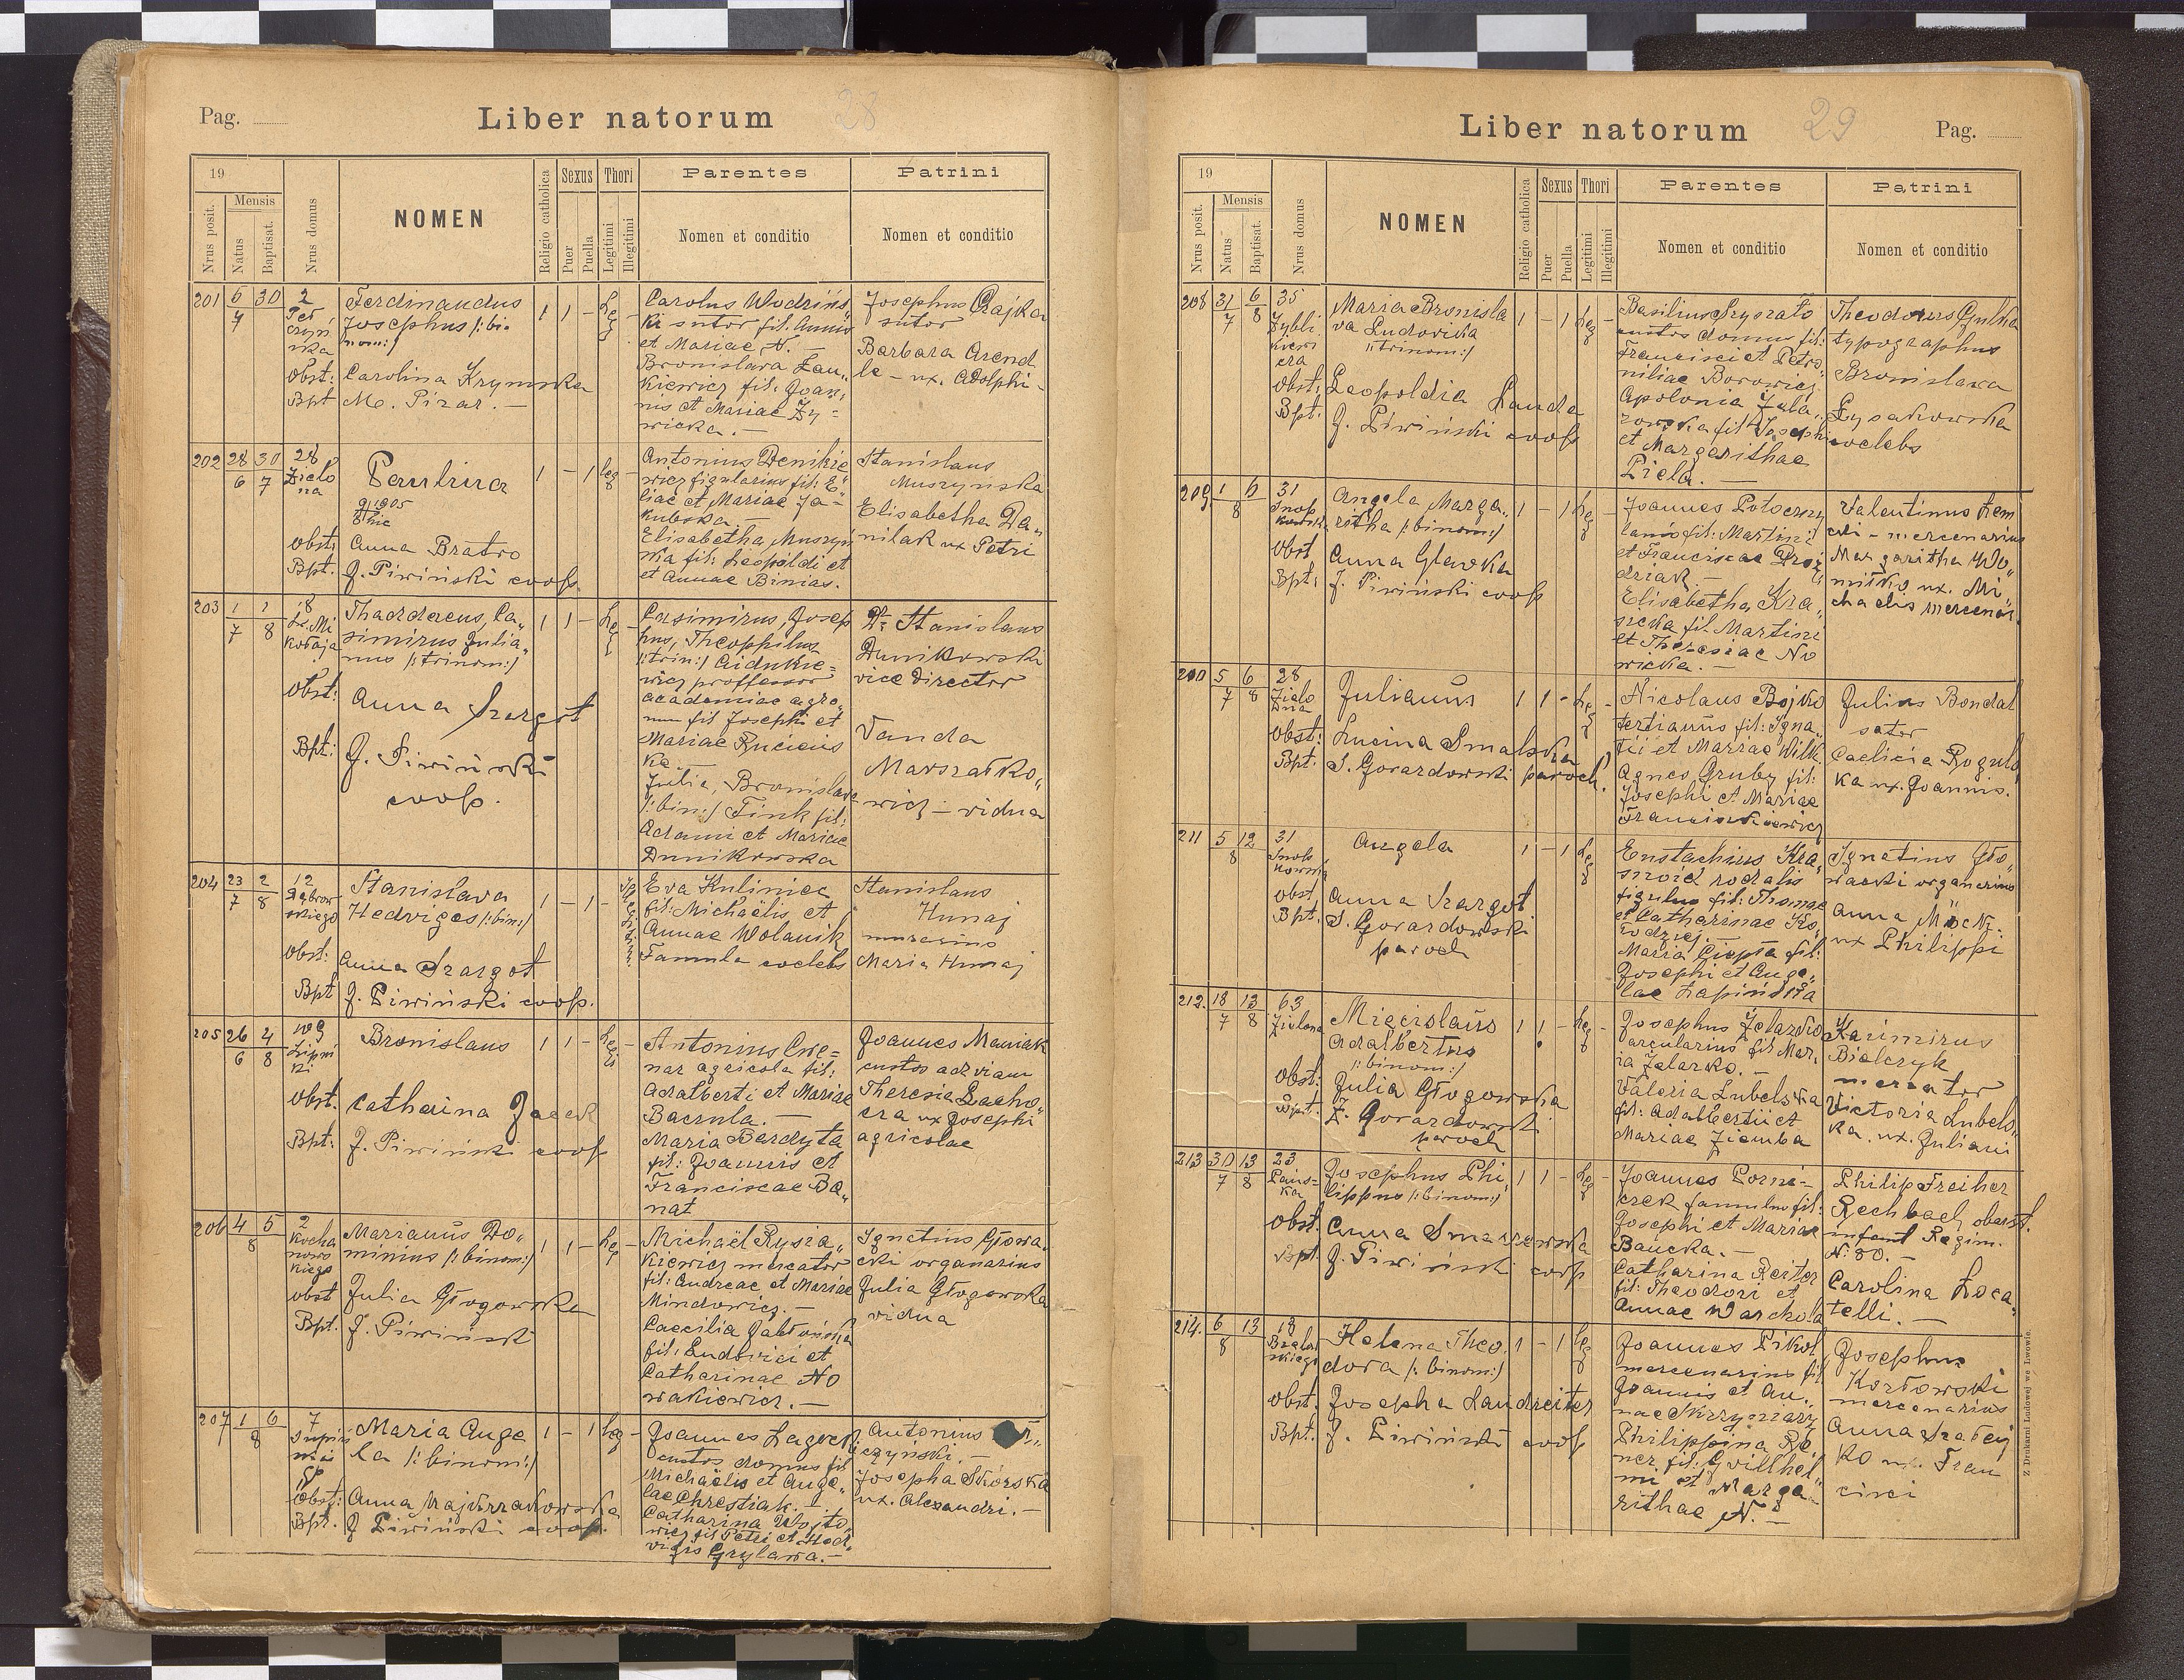 Pag.
Liber natorum
28
19
Nrus posit.
Mensis
Natus
Baptisat.
Nrus domus
NOMEN
Religio catholica
Sexus
Puer
Puella
Thori
Legitimi
Illegitimi
Parentes
Nomen et conditio
Patrini
Nomen et conditio
201 30 2
7
Ferdinandus
Josephus /:bi-
nom:/
1 1 - Leg
Obst: Carolina Krymska
Bpt M. Pizar. —
Carolus Wodzińs
ki sutor fil. Annæ
et Mariae N. —
Bronislava Zau„
kiewicz fil. Joan„
nis et Mariae Zy=
wicka. —
Josephus Czajka
sutor
Barbara Arend
le - ux. Adolphi -
202 28 30 28
6 7 Zielo
na
Paulina
1 - 1 leg
Obst: Anna Bratro
Bpt. J. Piwiński coop.
Antonius Denikie
wicz figularius fil: E„
liae et Mariae Ja-
kubska —
Elisabetha Muszyń
ska fil: Leopoldi et
et Annae Binias.
Stanislaus
Muszynska
Elisabetha Da„
nilak ux Petri
203 1 1 18
7 8 Św. Mi
kołaja
Thaddaeus, Ca„
simirus Julia„
nus /:trinom:/
1 1 - Leg
Obst: Anna Szargot
Bpt: J. Piwiński
coop.
Casimirus, Josep
hus, Theophilus
/:trin:/ Aidukie=
wicz proffessor
academiae agro„
num fil Josephi et
Mariae Rucieńs
ka —
Julia, Bronislava
/:bin:/ Fink fil:
Adami et Mariae
Dunikowska
Dr Stanislaus
Dunikowski
vice director
Vanda
Marszałko„
wicz - vidua
204 23 2 12
7 8 Dąbrow
skiego
Stanislava
Hedviges /:bin:/
1 - 1 -
Obst: Anna Szargot
Bpt J. Piwiński coop.
Eva Kuliniec
fil: Michaëlis et
Annae Wolanik
Famula coelebs
Stanislaus
Hunaj
murarius
Maria Hunaj
205 26 4 109
6 8 Lipni
ki
Bronislaus
1 1 - Leg
Obst. Catharina Jacek
Bpt: J. Piwiński coop
Antonius Cwe=
nar agricola fil:
Adalberti et Mariae
Bacrula. —
Maria Bardyta
fil: Joannis et
Franciscae Bo„
nat
Joannes Maniak
custos ad viam
Theresia Lacho„
cra ux Josephi
agricolae
206 4 5 2
8 Kocha
nows
kiego
Marianus Do„
minius /:binom:/
1 1 - Leg
Obst Julia Głogowska
Bpt. J. Piwiński
Michaël Rysia„
kiewicz mercator
fil: Andreae et Mariae
Mindowicz. —
Caecilia Jabłońska
fil: Ludovici et
Catharinae No
wakiewicz. —
Ignatius Głowa„
cki organarius
Julia Głogowska
vidua
207 1 6 7
8
Maria Ange
la /:binom:/
1 - 1 Leg
Obst: Anna Majdrzakowska
Bpt. J Piwiński coop.
Joannes Lagocki
custos domus fil
Michaëlis et Ange„
lae Chrestiak. —
Catharina Wojto„
wicz fil Petri et Hed„
vigis Gryława. —
Antonius
czyński. —
Josepha Skórska
ux. Alexandri. —
Liber natorum
29
Pag.
19
Nrus posit.
Mensis
Natus
Baptisat.
Nrus domus
NOMEN
Religio catholica
Sexus
Puer
Puella
Thori
Legitimi
Illegitimi
Parentes
Nomen et conditio
Patrini
Nomen et conditio
208 31 6 35
7 8 Zybli
kiewi
cza
Maria Bronisla
va Ludovika
/:trinom:/
1 - 1 Leg -
Obst: Leopoldia Landa
Bpt: J. Piwiński coop
Basilius Pryszato
custos domus fil:
Francisci et Petro„
niliae Borowicz
Apolonia Zala„
rowska fil Josephi
et Margarithae
Piela. —
Theodorus Gulka
typographus
Bronislava
Łysakowska
coelebs
209. 1 6 31
8 Snop
kowsk.
Angela Marga„
ritha /:binom:/
1 - 1 Leg -
Obst Anna Glawka
Bpt: J. Piwiński coop
Joannes Potoczny
lanio fil: Martini
et Franciscae Droz
dziak —
Elisabetha Kra„
sicka fil Martini
et Theresiae No
wicka. —
Valentinus Kem
cki - mercenarius
Margaritha Wo„
nitko ux. Mi„
chaelis mercenar.
200 5 6 28
7 8 Zielo
na
Julianus
1 1 - Leg
Obst: Lucina Smalska
Bpt: S. Gorazdowski paroch.
Nicolaus Bojko
tertianus fil: Igna„
tii et Mariae Wilk
Agnes Gruby fil:
Josephi et Mariae
Franciszkiewicz
Julius Bondal
sator
Caelicia Rogul„
ka ux. Joannis.
211 5 12 31
8 Snop
kowska
Angela
1 - 1 Leg
Obst Anna Szargot
Bpt. S. Gorazdowski
paroch
Eustachius Kra„
snoid rodalis
figulus fil: Thomae
et Catharinae Ko„
łodziej. —
Maria Ciepła fil:
Josephi et Ange„
lae Łapińska
Ignatius Gło„
wacki organarius
Anna Möck.
ux Philippi
212. 18 13 63
7 8 Zielona
Miecislaus
Adalbertus
/:binom:/
1 1 - Leg -
Obst: Julia Głogowska
Bpt: Z. Gorazdowski
paroch
Josephus Zelazko
arcularius fil Mar„
ia Zelazko. —
Valeria Lubelska
fil: Adalbertii et
Mariae Ziemba
Kazimirus
Bialczyk
mercator
Victoria Lubels„
ka. ux. Juliani
213 30 13 23
7 8 Pańs=
ka
Josephus Phi„
lippus /:binom:/
1 1 - Leg -
Obst. Anna Smarzewska
Bpt. J. Piwiński coop
Joannes Porni-
czek famulus fil:
Josephi et Mariae
Baucka. —
Catharina Reiter
fil: Theodori et
Annae Warchola
Philip Freiher
Rechbach oberst.
infant Regim.
N: 80. —
Carolina Loca„
telli. —
214. 6 13 18
8
Helena Theo„
dora /:binom:/
1 - 1 leg
Obst. Josepha Landreiter
Bpt. J. Piwiński coop
Joannes Pikul
mercenarius fil
Joannis et An„
nae Skrzyniarz
Philippina Re„
ner fil: Willhel„
mi et Marga-
rithae N. —
Josephus
Kozłowski
mercenarius
Anna Szafej
ko ux. Fran
cisci
Z Drukarni Ludowej we Lwowie.